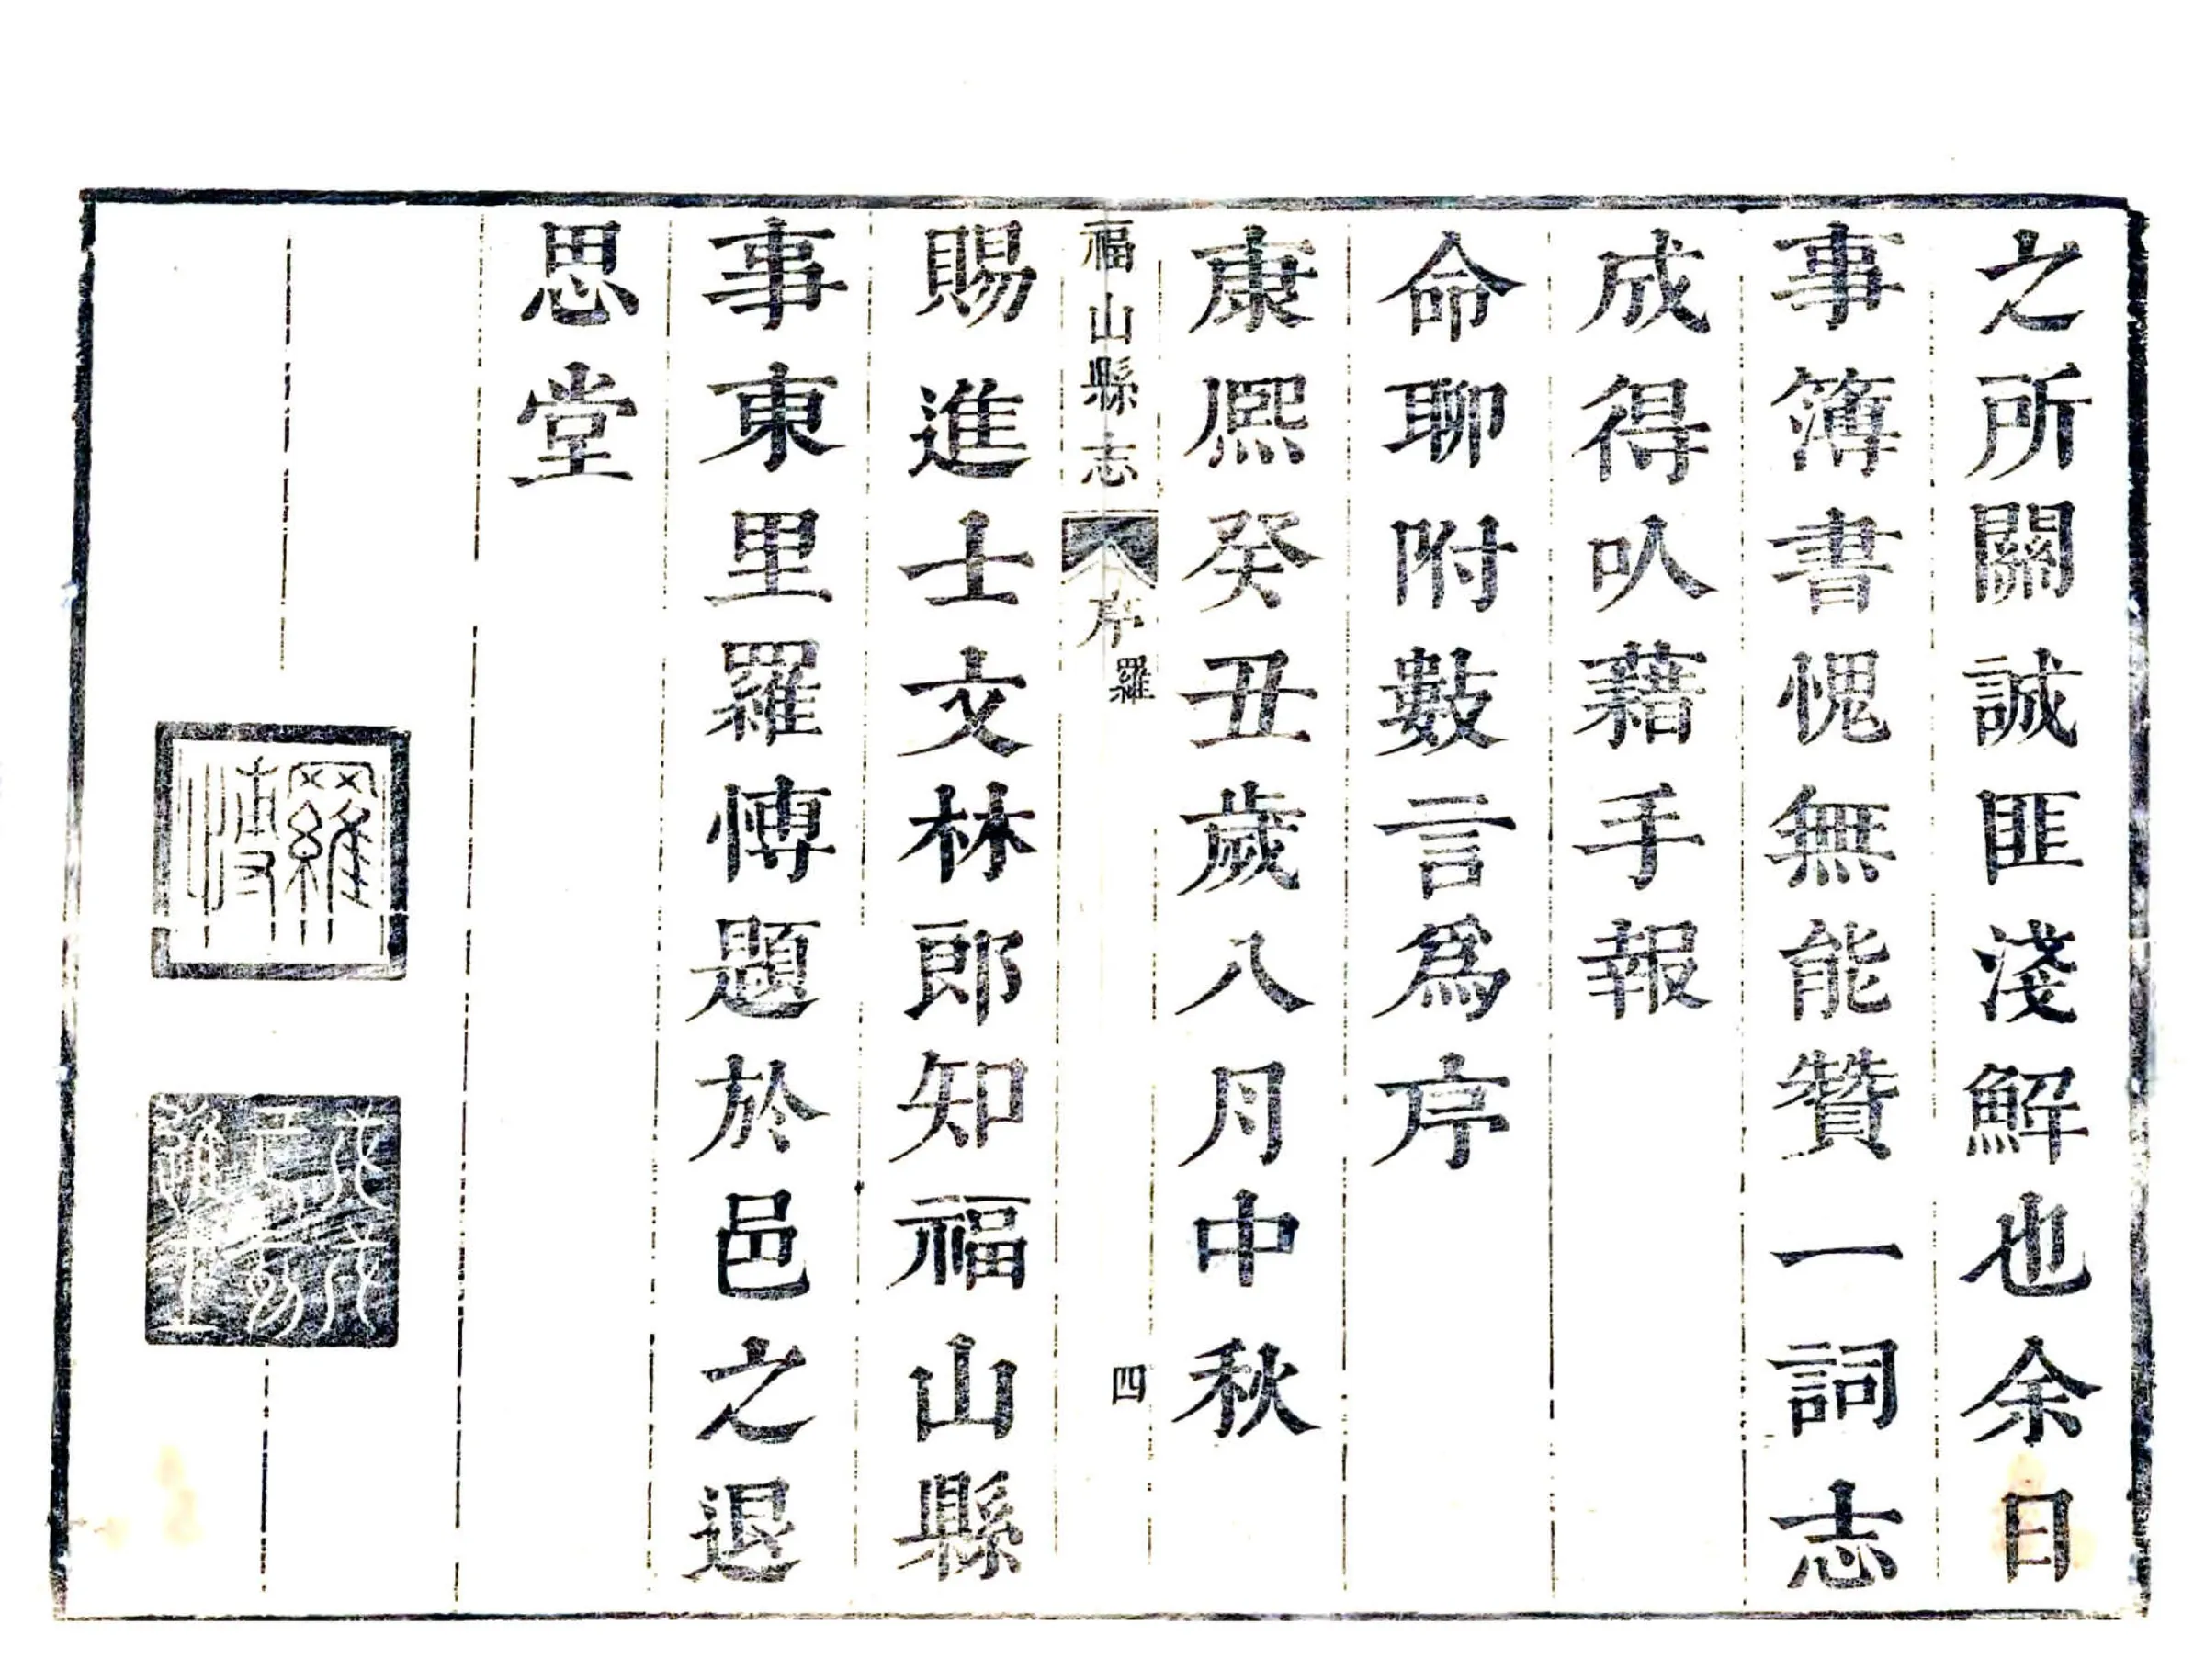 之所關誠匪淺解也余日
事簿書愧無能贊一詞志
成得㕥藉手報
命聊附數言爲序
康熈癸丑歲八月中秋
福山縣志 序 羅 四
賜進士文林郎知福山縣
事東里羅愽題於邑之退
思堂
羅愽
進士